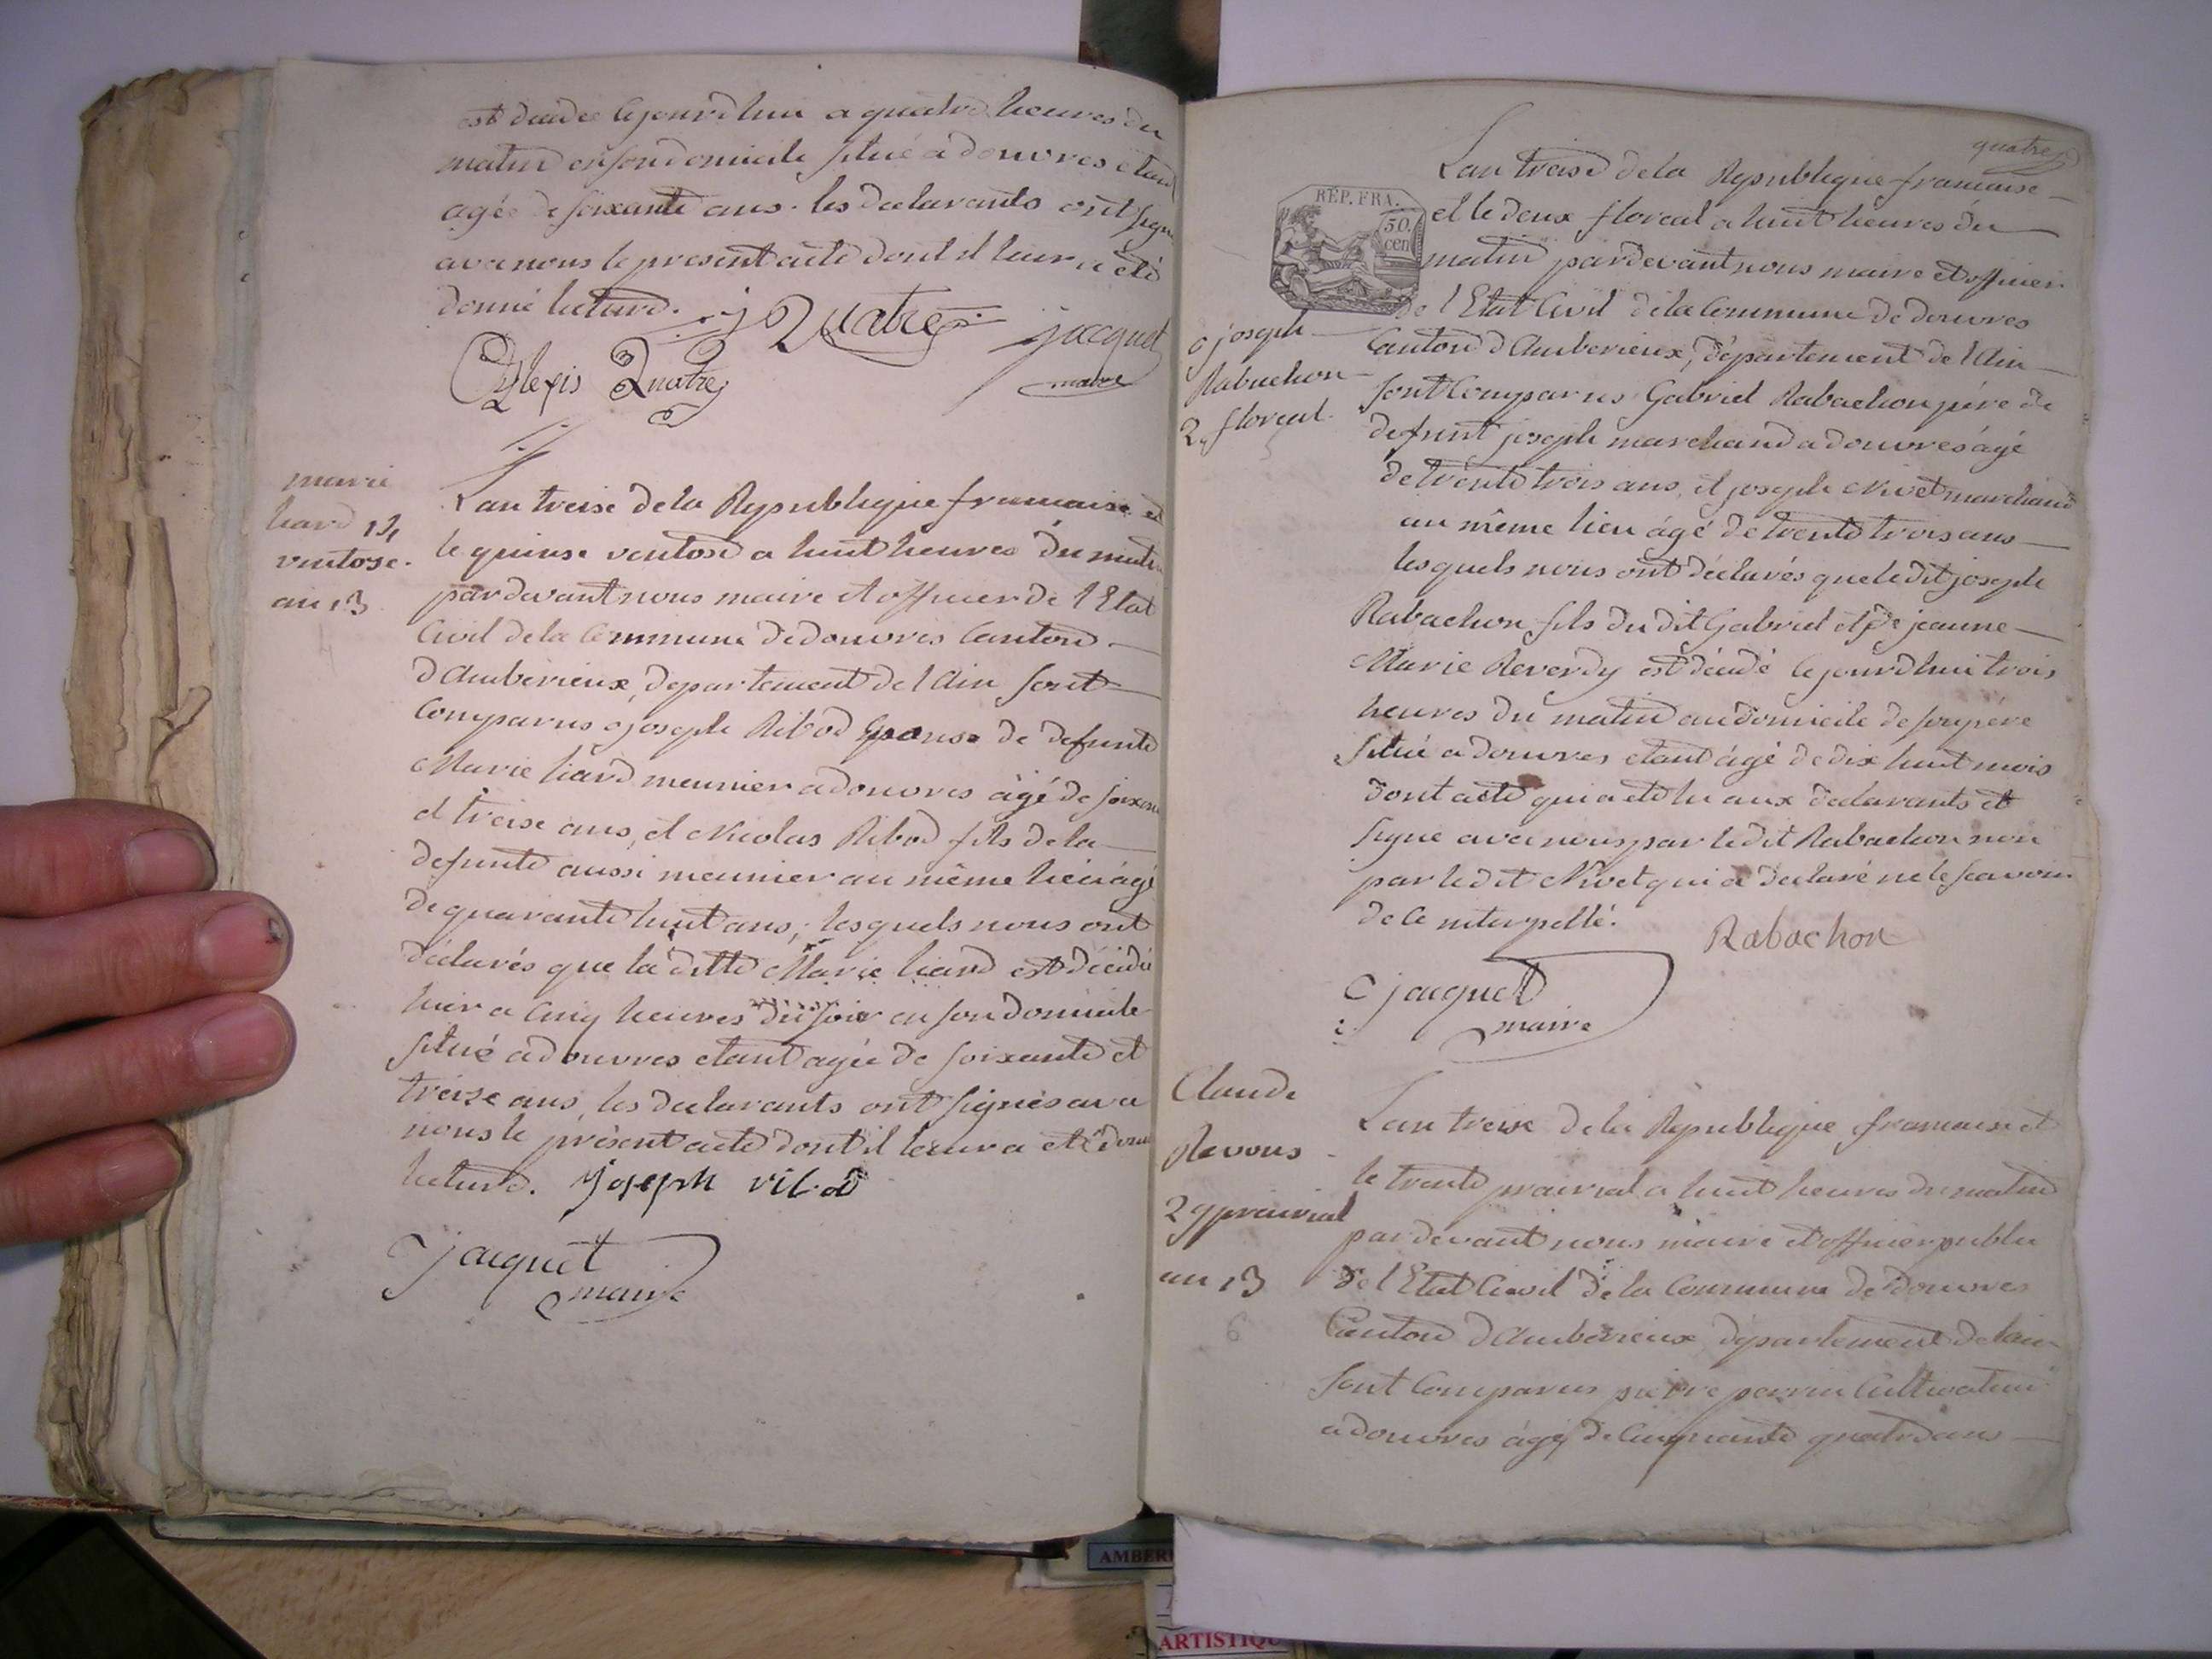 est décédée cejourd'hui a quatre heures du
matin en son domicile situé a douvres etant
agée de soixante ans. les declarants ont signé
avec nous le present acte dont il leur a été
donné lecture.
j Quatre
jacquet
maire
Alexis Quatre
marie
liard 14
ventose.
an 13
Lan treise de la Republique francaise et
le quinse ventose a huit heures du matin
pardevant nous maire et officier de l'Etat
Civil de la Commune de douvres Canton
d'Ambérieux, département de l'Ain sont
Comparus joseph Ribod Epoux de defunte
Marie liard meunier a douvres âgé de soixante
et treise ans, et Nicolas Ribod fils de la
defunte aussi meunier au même lieu âgé
de quarante huit ans, lesquels nous ont
déclarés que la ditte Marie liard est décédée
hier a Cinq heures du soir en son domicile
situé a douvres etant agée de soixante et
treize ans, les declarants ont signés avec
nous le présent acte dont il leur a eté donné
lecture. joseph ribod
jacquet
maire
quatre
REP. FRA.
50.
cen
Lan treise de la Republique francaise
et le deux floreal a huit heures du
matin pardevant nous maire et officier
de l'Etat Civil de la Commune de douvres
Canton d'Amberieux, département de l'Ain
joseph
Rabachon
2 floreal.
sont Comparus Gabriel Rabachon père de
defunt joseph marchand a douvres âgé
de trente trois ans, et joseph Nivet marchand
au même lieu âgé de trente trois ans
lesquels nous ont déclarés que le dit joseph
Rabachon fils du dit Gabriel et de jeanne
Marie Reverdy est décédé cejourd'hui trois
heures du matin au domicile de son père
situé a douvres etant âgé de dix huit mois
dont acte qui a eté lu aux declarants et
signé avec nous par le dit Rabachon non
par le dit Nivet qui a declaré ne le scavoir
de ce interpellé.
Rabachon
jacquet
maire
Claude
Ravous
29 prairial
an 13
6
Lan treise de la Republique francaise et
le trente prairial a huit heures du matin
pardevant nous maire et officier public
de l'Etat Civil de la Commune de douvres
Canton d'Ambérieux, département de lain
sont Comparus pierre perrin Cultivateur
a douvres âgé de Cinquante quatre ans
AMBER
ARTISTIQU